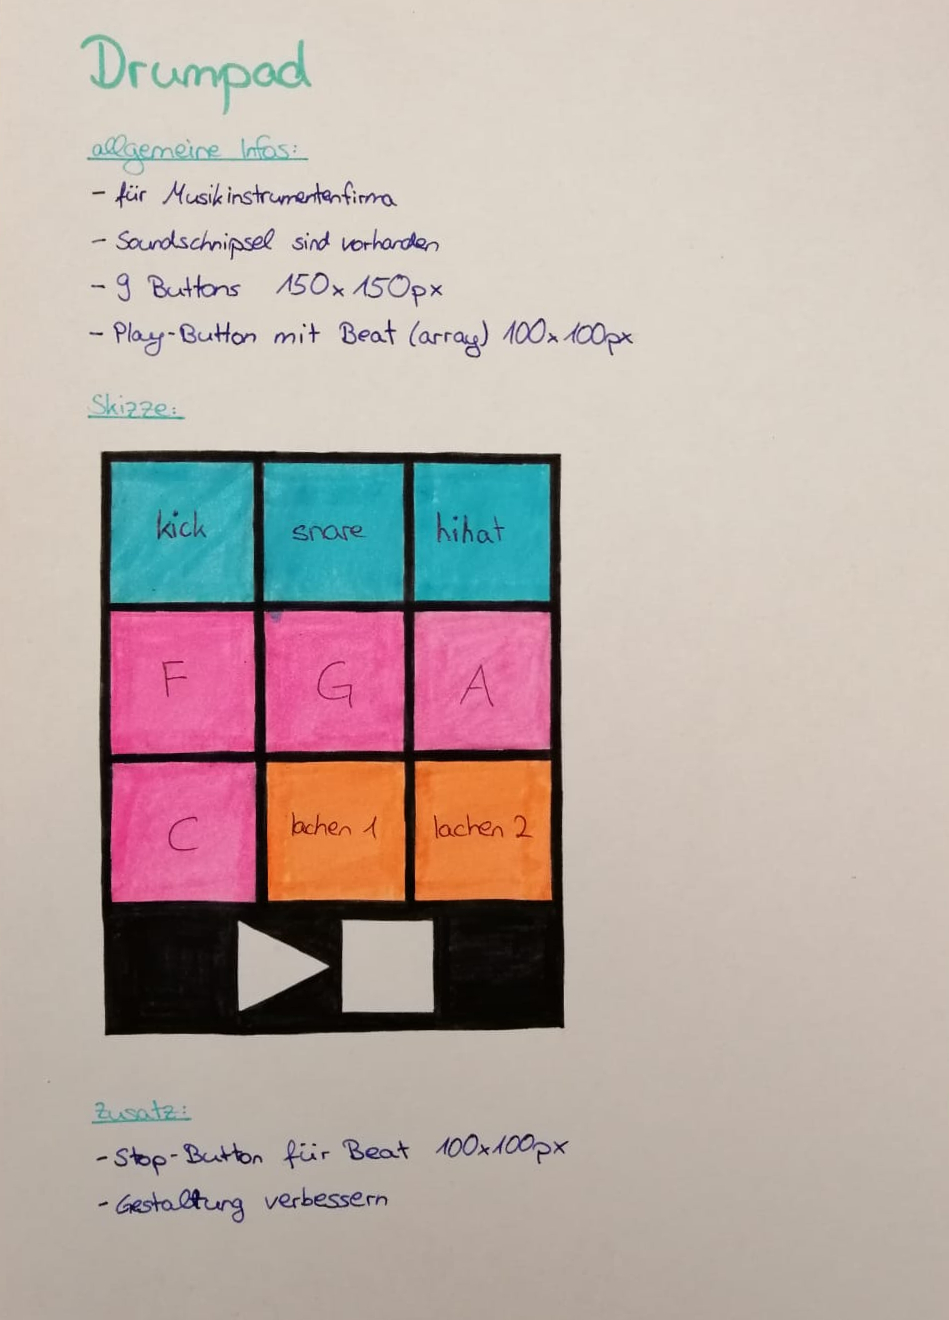 Drumpad
allgemeine Infos:
- für Musikinstrumentenfirma
- Soundschnipsel sind vorhanden
- 9 Buttons 150x150px
- Play-Button mit Beat (array) 100x100px
Skizze:
kick snare hihat
F G A
C lachen 1 lachen 2
Zusatz:
- Stop-Button für Beat 100x100px
- Gestaltung verbessern